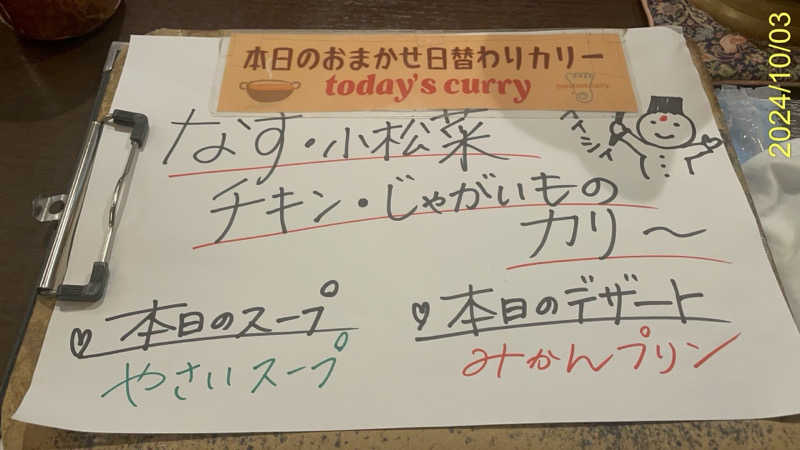 本日のおまかせ日替わりカリー
today's curry
なす・小松菜
チキン・じゃがいもの
カリ〜
ヘイシイ
♡本日のスープ
やさいスープ
♡本日のデザート
みかんプリン
2024/10/03